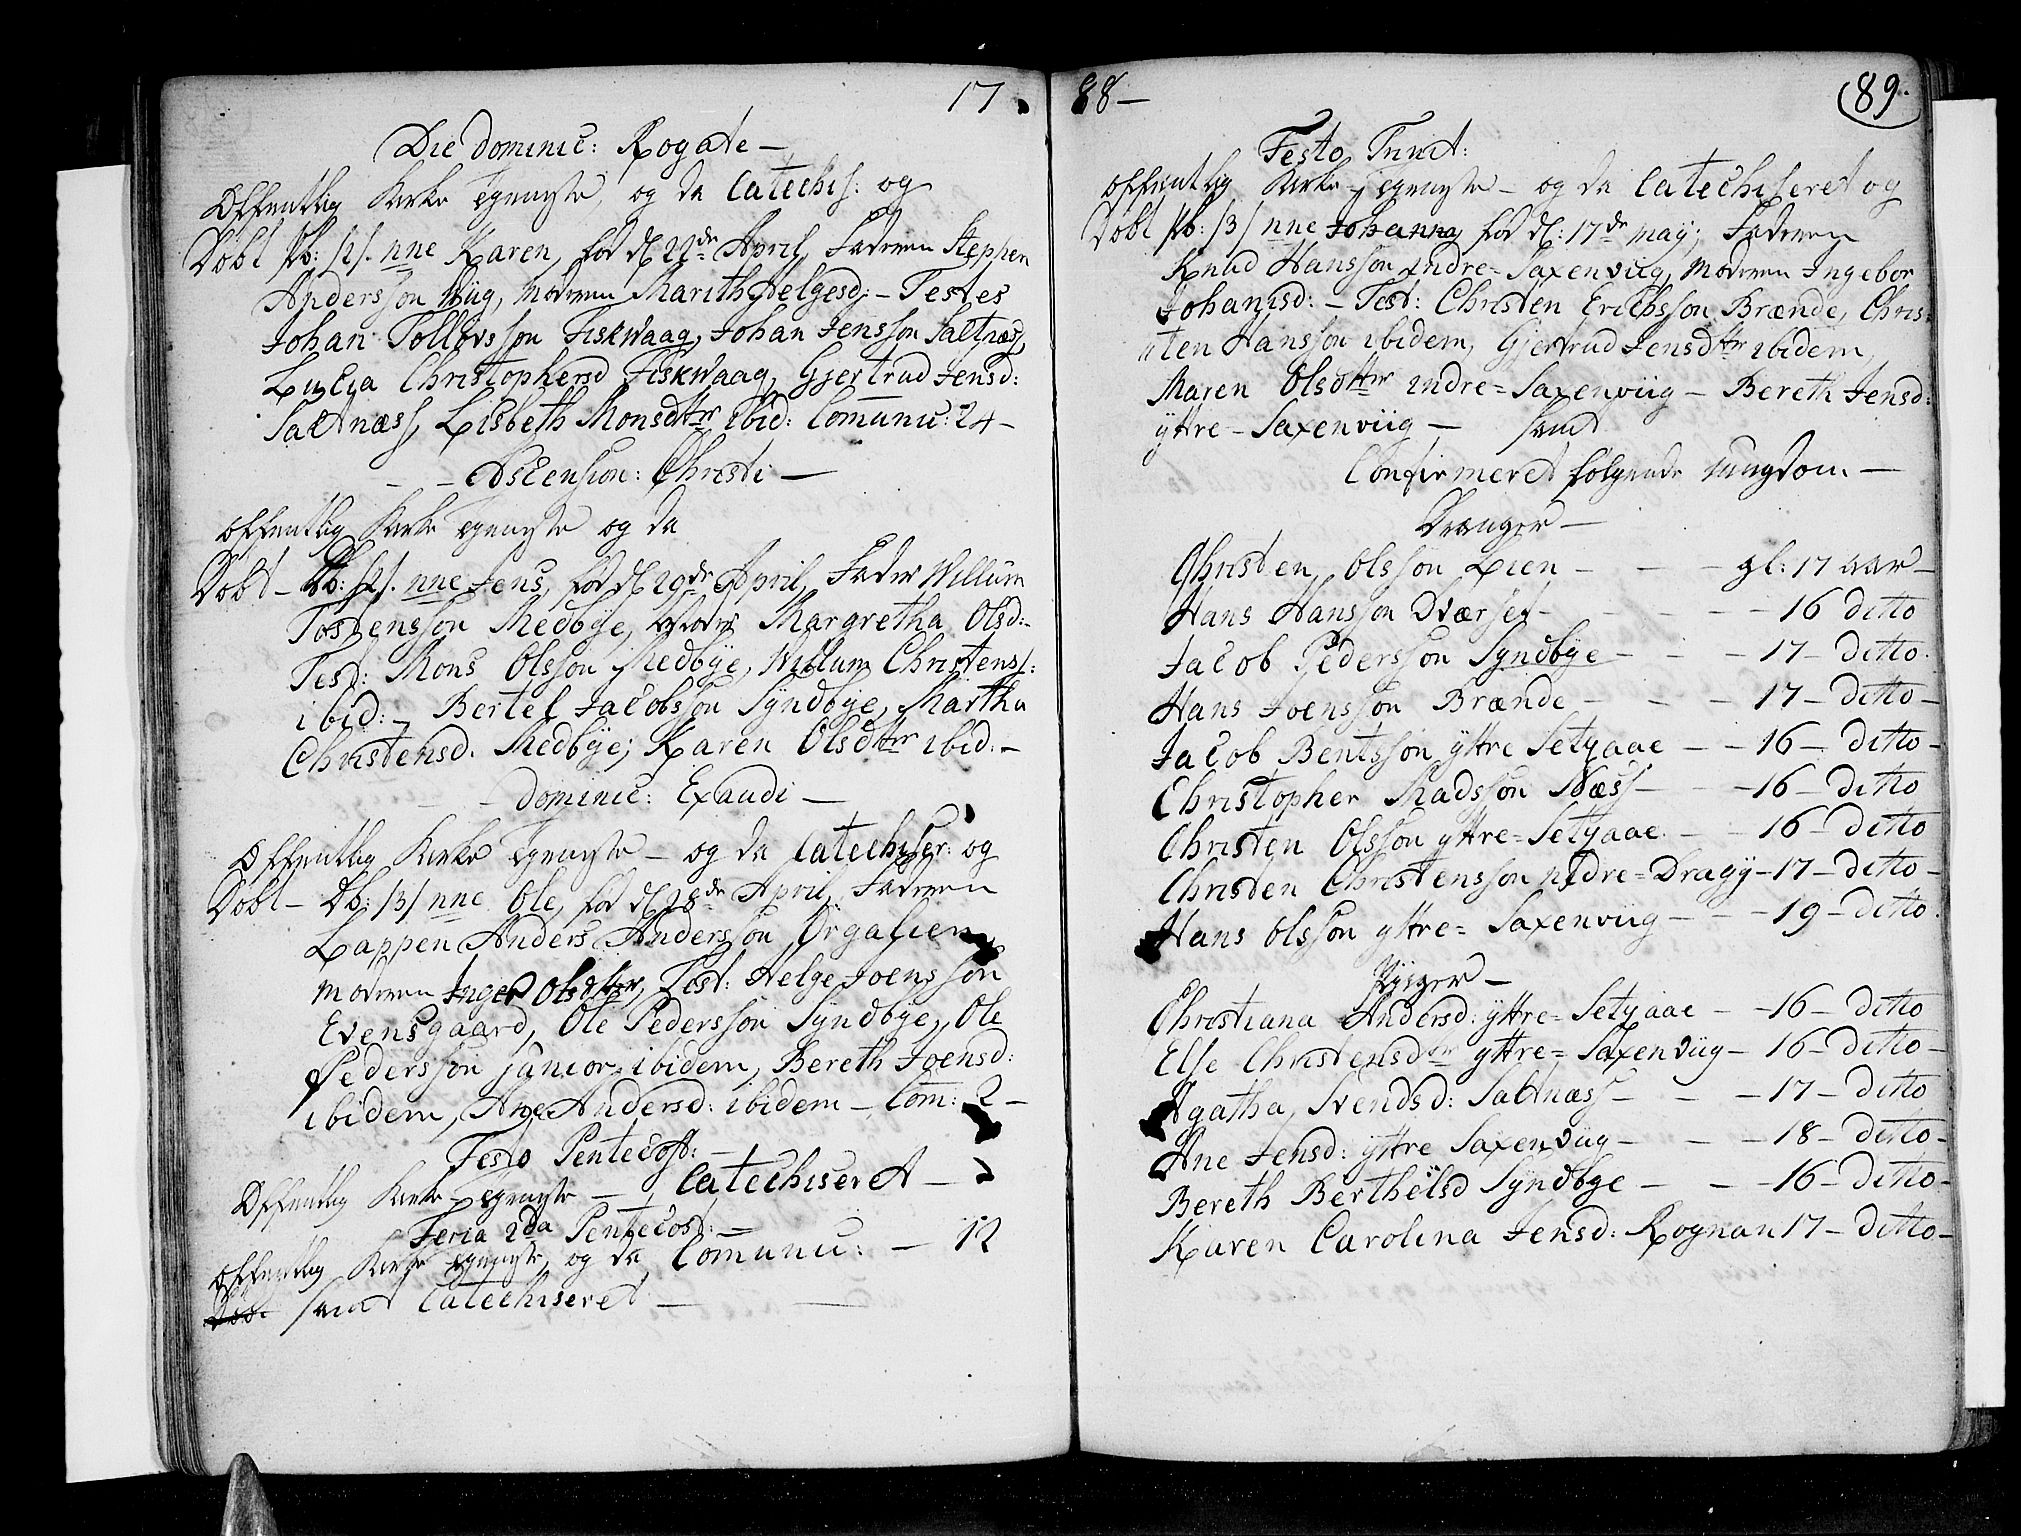 17
Die Dominic: Rogate —
Offentlig Kirke Tieneste, og da Catechis: og
Døbt Pb: /2/. nne Karen, fød d 22de April, Faderen Stephen
Andersson Viig, Moderen Marith Helgesd: — Testes
Johan Tollevsson Fiskwaag, Johan Jensson Saltnæs,
Lucia Christophersd Fiskwaag, Gjertrud Jensd:
Saltnæss, Lisbeth Monsdttr ibid: Comunic: 24 —
— — Ascension: Christi —
Offentlig Kirke Tieneste og da
Døbt — Db: /2/. nne Jens, fød d 29de April, Fader Willum
Tostensson Medbye, Moder Margretha Olsd: —
Test: Mons Olsson Medbye, Willum Christenss:
ibid: — Bertel Jacobsson Syndbye, Martha
Christensd. Medbye; Karen Olsdttr ibid: —
— — Dominic: Exaudi —
Offentlig Kirke Tieneste — og da Catechiser: og
Døbt — Db: /3/ nne Ole, fød d 28de April, Faderen
Lappen Anders Andersson Orgalien,
Moderen Inger Olsdttr, Test: Helge Joensson
Evensgaard, Ole Pedersson Syndbye, Ole
Pedersson junior ibidem, Bereth Joensd:
ibidem, Ane Andersd: ibidem — Com: 2 —
Festo Pentecost: —
Offentlig Kirke-Tieneste — Catechiseret —
Feria 2da Pentecost: —
Offentlig Kirke Tieneste, og da Comunic: — 12
Døbt samt Catechiseret —
88 —
89.
Festo Trinit:
Offentlig Kirke-Tieneste — og da Catechiseret og
Døbt Pb: /3/ nne Johanna fød d: 17de may, Faderen
Knud Hansson indre = Saxenviig, Moderen Ingebor
Johanisd: — Test: Christen Erichsson Brænde, Chris=
ten Hansson ibidem, Gjertrud Jensdttr ibidem,
Maren Olsdttr indre = Saxenviig — Bereth Jensd:
yttre — Saxenviig — samt
Confirmeret følgende Ungdom. —
Drænger —
Christen Olsson Lien — — — gl: 17 aar —
Hans Hansson Dværset — — — 16 ditto
Jacob Pedersson Syndbye — — — 17 — ditto.
Hans Joensson Brænde — — — 17 — ditto —
Jacob Bentsson yttre Setzaae — — 16 — ditto —
Christopher Madsson Næss — — — 16 — ditto
Christen Olsson yttre = Setzaae — — 16 — ditto
Christen Christensson indre = Dragy — 17 — ditto —
Hans Olsson yttre = Saxenviig — — — 19 — ditto.
Piiger —
Christiana Andersd: yttre = Setzaae — — 16 — ditto
Else Christensdttr yttre = Saxenviig — 16 — ditto —
Agatha Svendsd: Saltnæss — — — 17 — ditto
Ane Jensd: yttre Saxenviig — — — 18 — ditto —
Bereth Berthelsd Syndbye — — — 16 — ditto —
Karen Carolina Jensd: Rognan 17 — ditto —